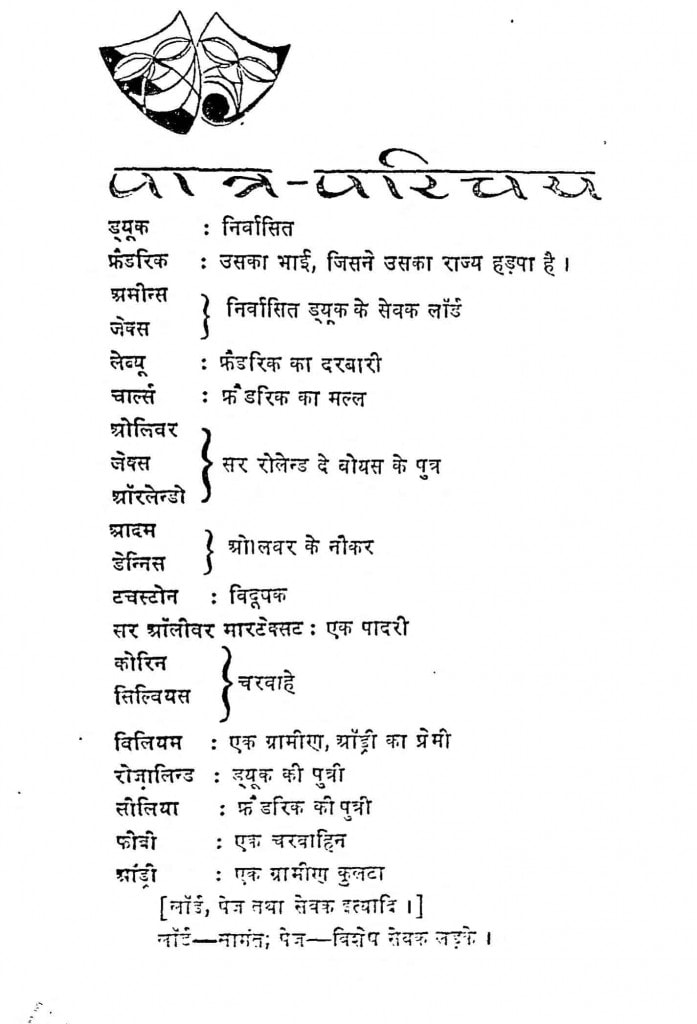 पात्र-परिचय
ड्यूक : निर्वासित
फ्रैडरिक : उसका भाई, जिसने उसका राज्य हड़पा है ।
अमीन्स
जेक्स } निर्वासित ड्यूक के सेवक लॉर्ड
लेब्यू : फ्रैडरिक का दरबारी
चार्ल्स : फ्रैडरिक का मल्ल
ओलिवर
जेक्स } सर रोलेन्ड दे बोयस के पुत्र
ऑरलेन्डो
आदम
डेन्निस } ओलिवर के नौकर
टचस्टोन : विदूषक
सर ऑलीवर मारटेक्सट : एक पादरी
कोरिन
सिल्वियस } चरवाहे
विलियम : एक ग्रामीण, ऑड्री का प्रेमी
रोज़ालिन्ड : ड्यूक की पुत्री
सीलिया : फ्रैडरिक की पुत्री
फीबी : एक चरवाहिन
ऑड्री : एक ग्रामीण कुलटा
[लॉर्ड, पेज तथा सेवक इत्यादि ।]
लॉर्ड—सामंत; पेज—विशेष सेवक लड़के ।